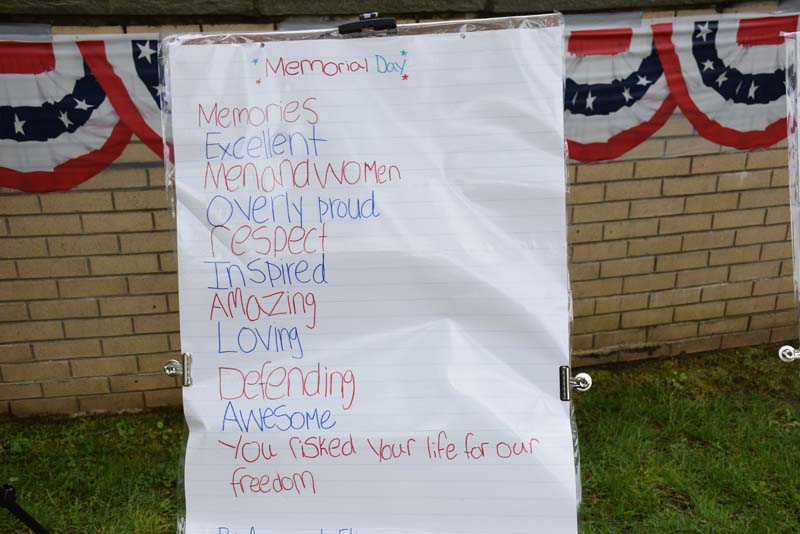 Memorial Day
Memories
Excellent
MenandwoMen
Overly proud
respect
Inspired
AMazing
Loving
Defending
AWesoMe
You risked Your life for our
freedom